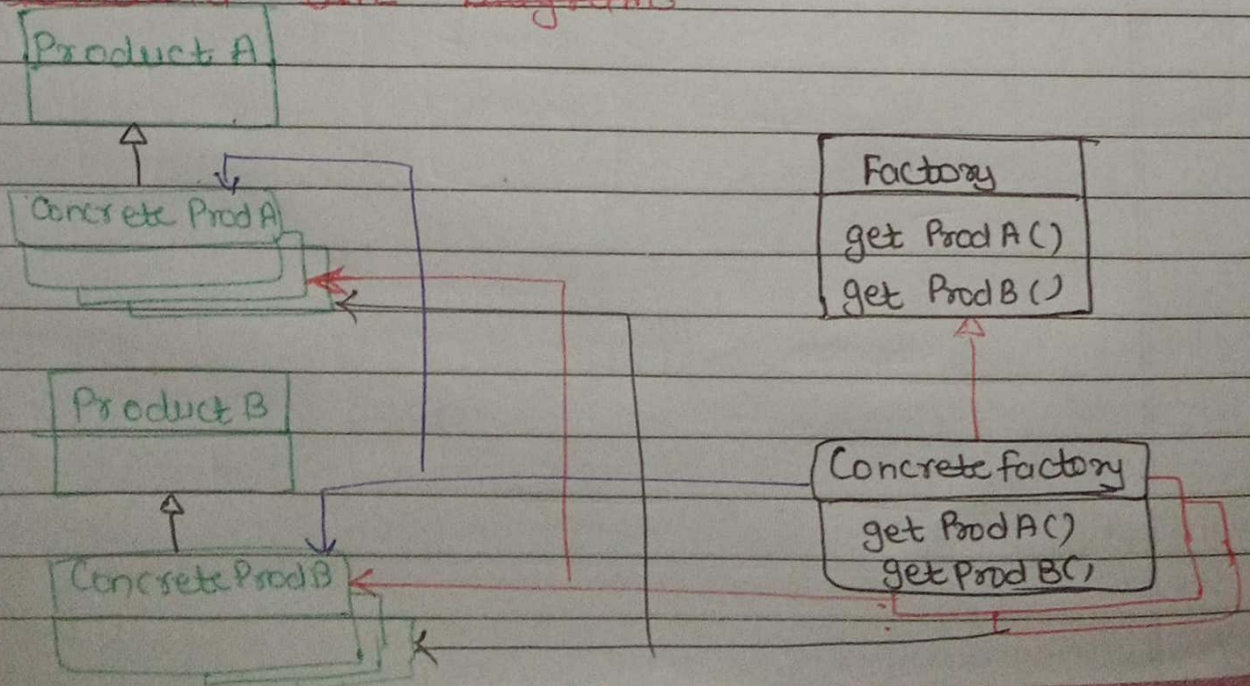 Diagrams
Product A
Concrete Prod A
Product B
Concrete Prod B
Factory
get Prod A ()
get Prod B ()
Concrete factory
get Prod A ()
get Prod B ()